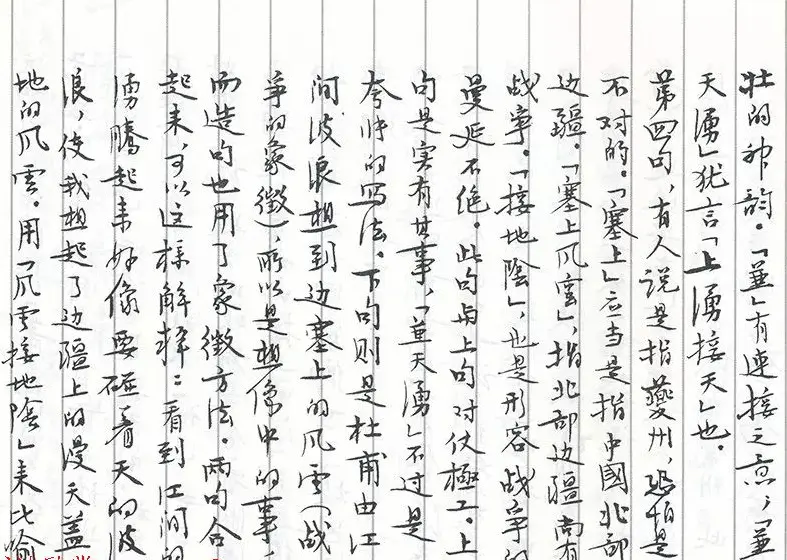 壮的神韵。「兼」有連接之意，「兼
天湧」犹言「上湧接天」也。
第四句，有人说是指夔州，恐怕是
不对的。「塞上」应当是指中國北部
边疆。「塞上风雲」，指北部边疆尚有
战争。「接地陰」，也是形容战争的
曼延不绝。此句与上句对仗極工。上
句是实有其事，「兼天湧」不过是
夸张的写法。下句则是杜甫由江
间波浪想到边塞上的风雲（战
争的象徵），所以是想像中的事
而造句也用了象徵方法。两句合
起来，可以这样解释：看到江间的
湧腾起来好像要碰着天的波
浪，使我想起了边疆上的漫天盖
地的风雲。用「风雲接地陰」来比喻